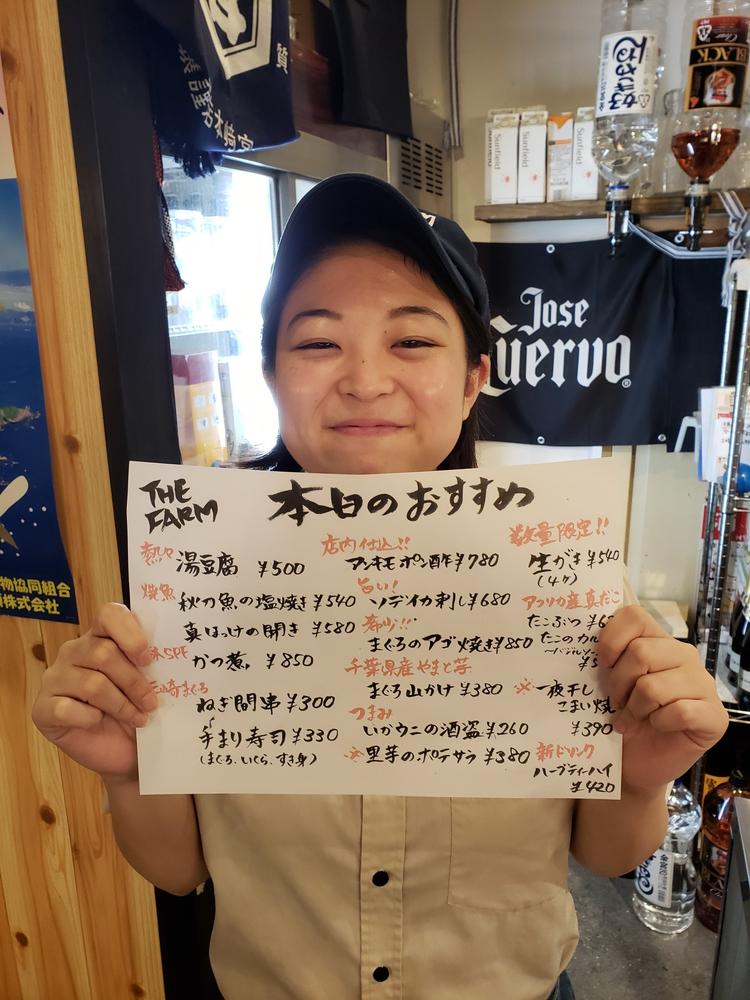 質
Sunfield
Sunfield
BLACK
Jose
Cuervo
物協同組合
株式会社
THE
FARM
本日のおすすめ
熱々
湯豆腐 ¥500
焼魚
秋刀魚の塩焼き ¥540
真ほっけの開き ¥580
かつ煮 ¥850
三崎まぐろ
ねぎ間串 ¥300
手まり寿司 ¥330
(まぐろ、いくら、すき身)
店内仕込!!
アンキモポン酢 ¥780
旨い!
ソデイカ刺し ¥680
希少!!
まぐろのアゴ焼き ¥850
千葉県産やまと芋
まぐろ山かけ ¥380
つまみ
いかウニの酒盗 ¥260
※里芋のポテサラ ¥380
数量限定!!
生がき ¥540
(4ヶ)
アフリカ産真だこ
たこぶつ
たこのカル
※一夜干し
こまい焼
¥390
新ドリンク
ハーブティーハイ
¥420